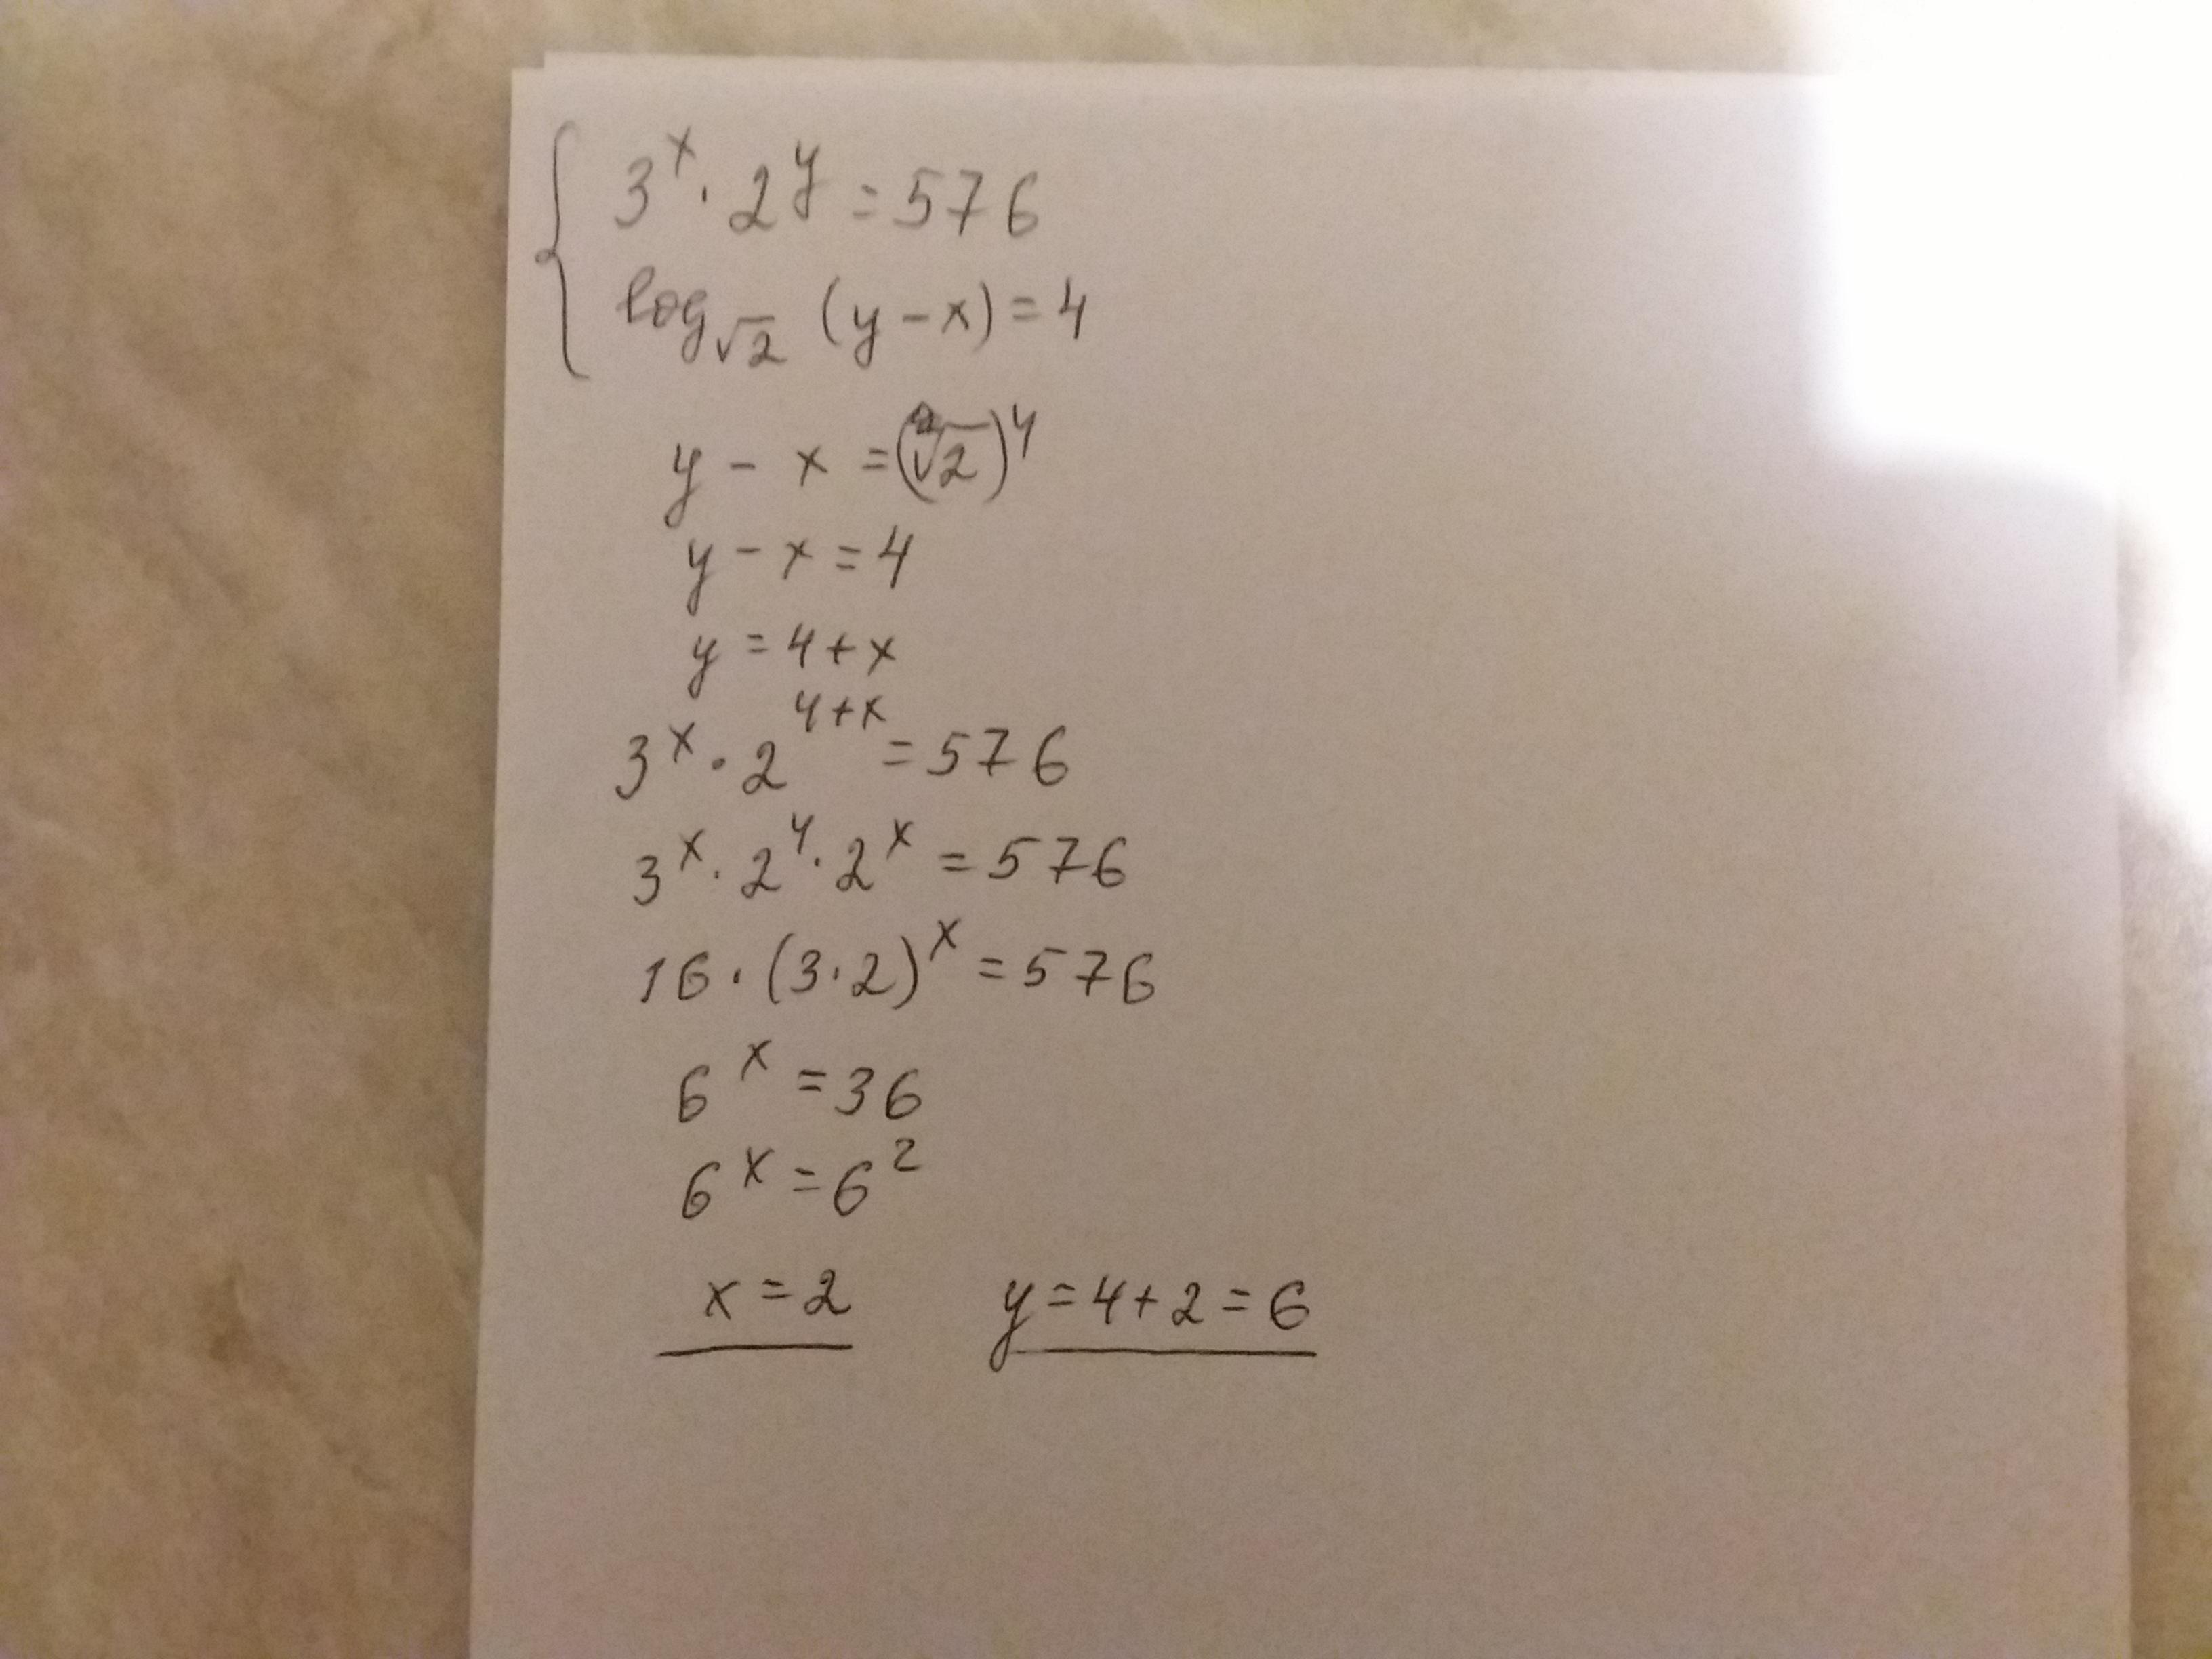 { 3^x · 2^y = 576
log_√2 (y - x) = 4
y - x = (√2)^4
y - x = 4
y = 4 + x
3^x · 2^(4+x) = 576
3^x · 2^4 · 2^x = 576
16 · (3 · 2)^x = 576
6^x = 36
6^x = 6^2
x = 2 y = 4 + 2 = 6